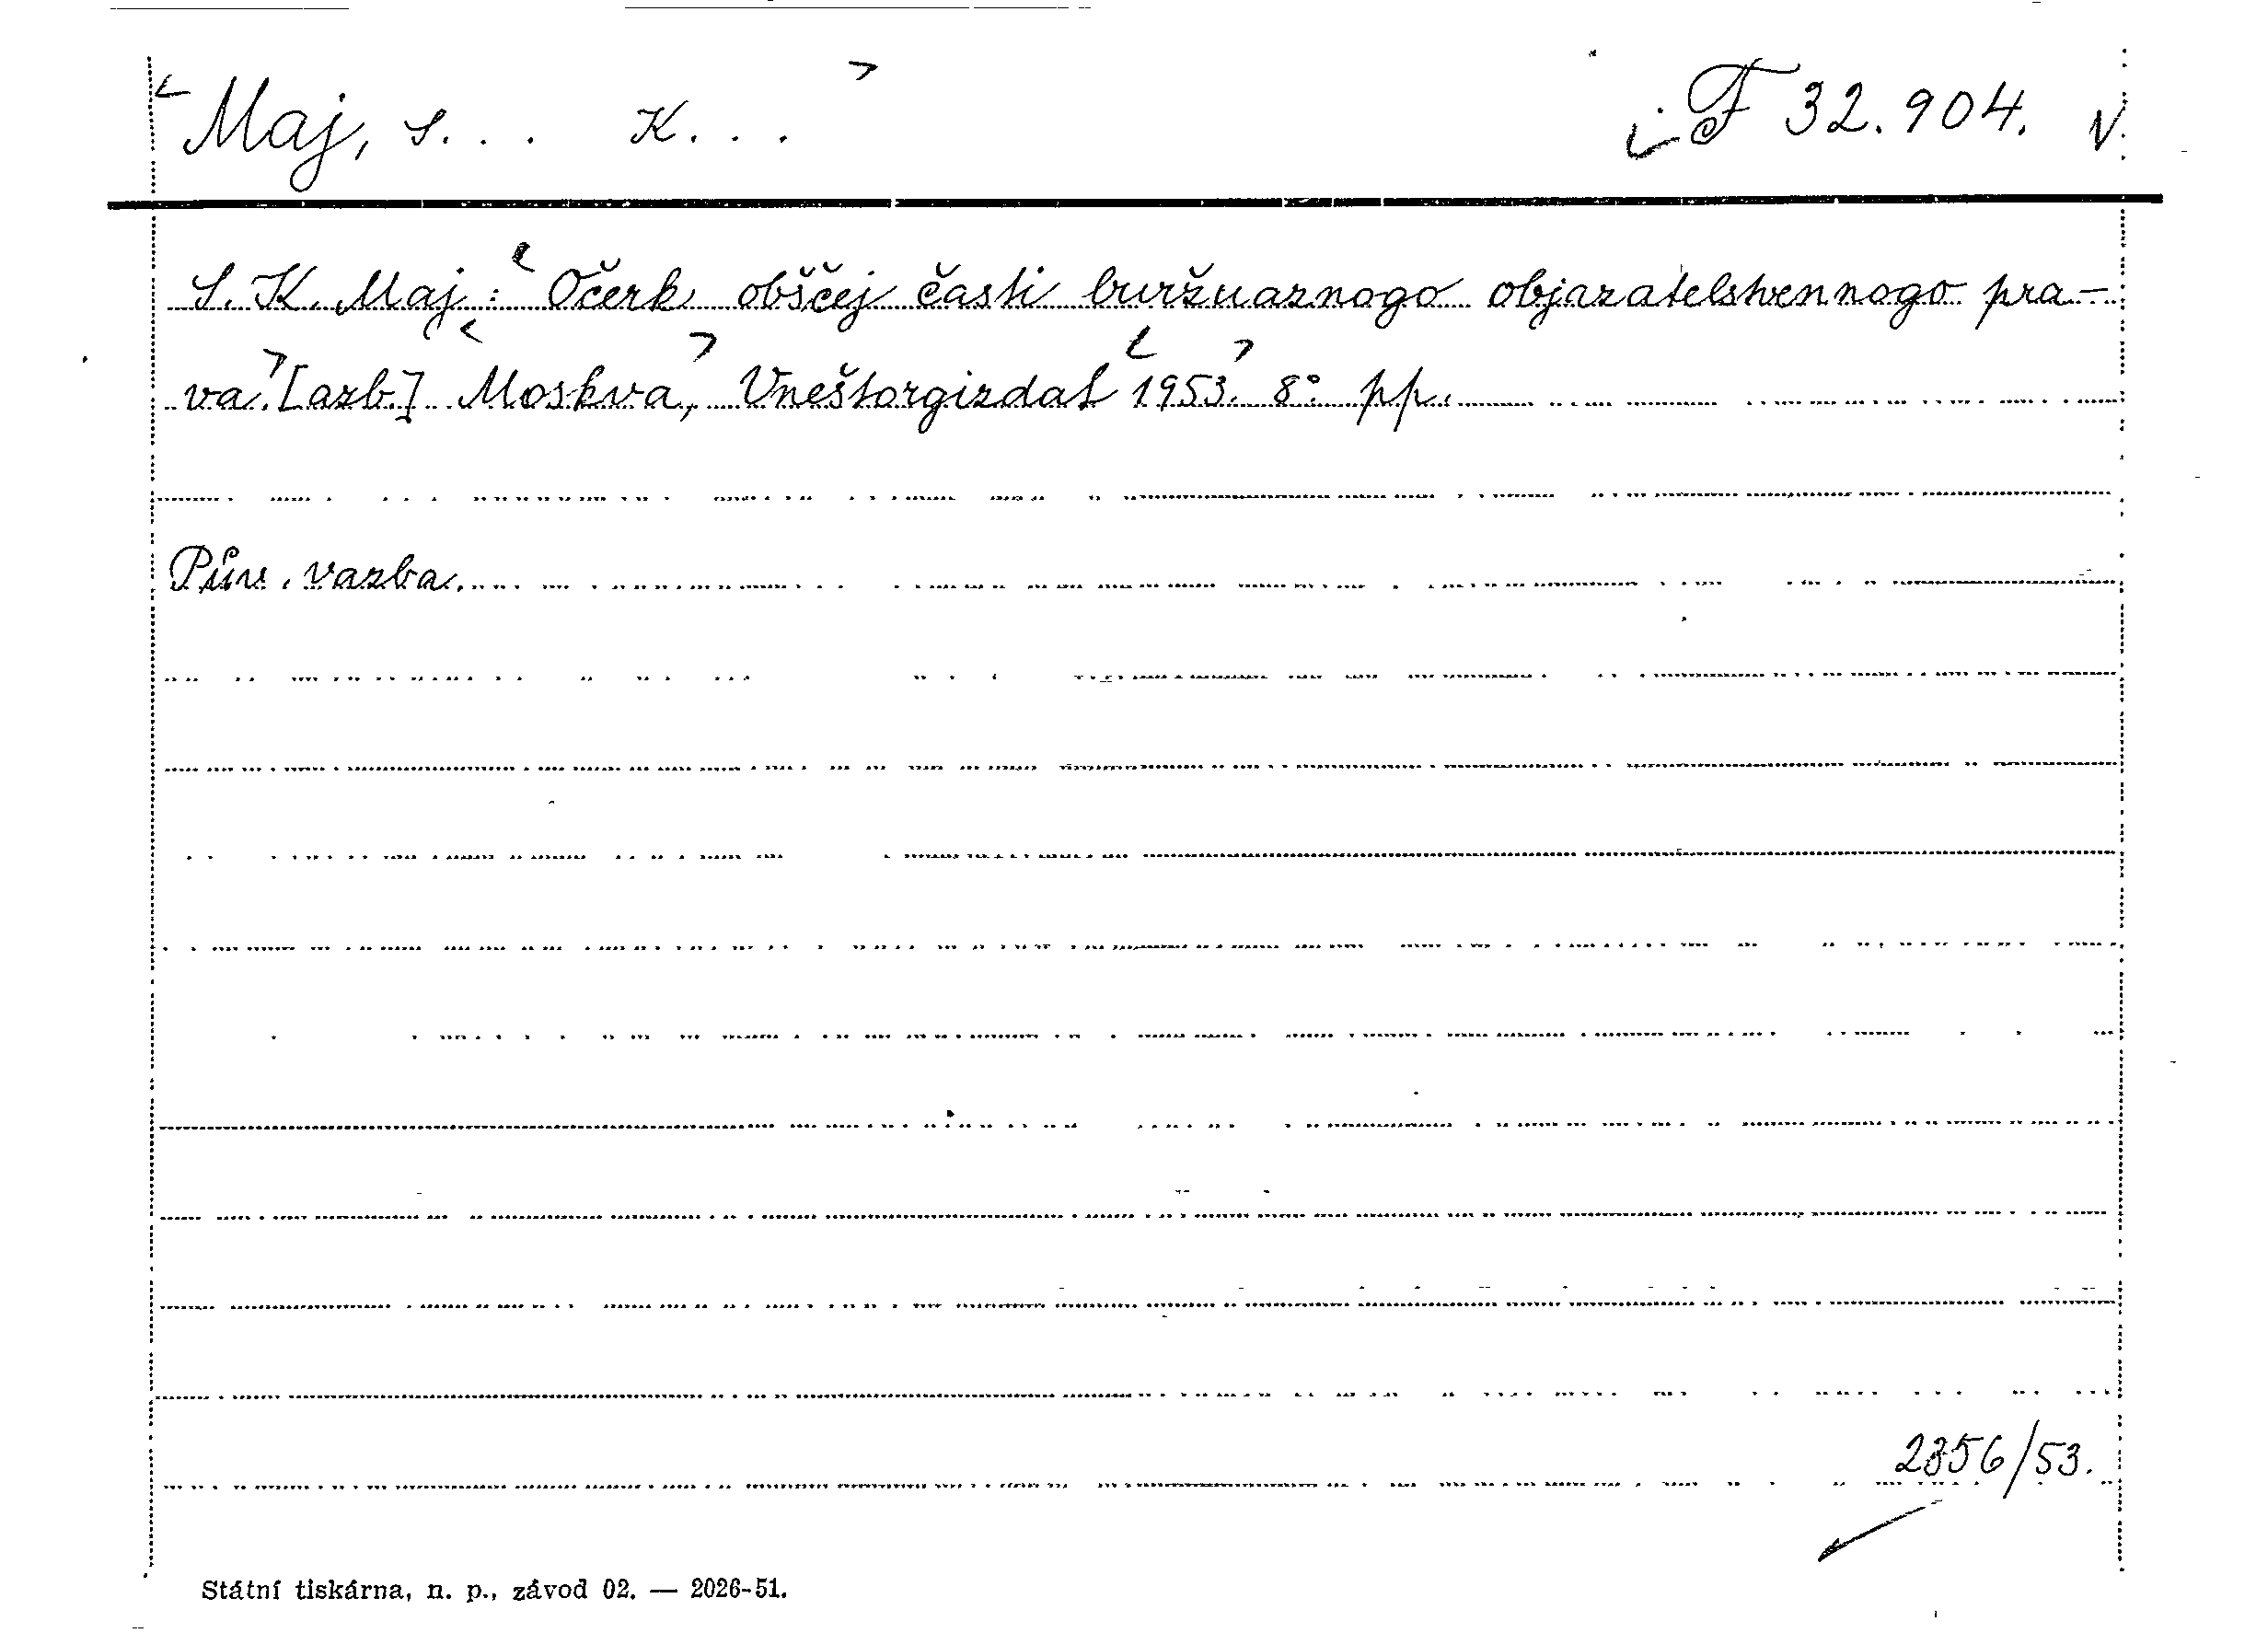 Maj, S... K... F 32.904.
S. K. Maj: Očerk obščej časti buržuaznogo objazatelstvennogo pra-
va. [azb.] Moskva, Vneštorgizdat 1953. 8° pp.
Pův. vazba.
2356/53.
Státní tiskárna, n. p., závod 02. — 2026-51.